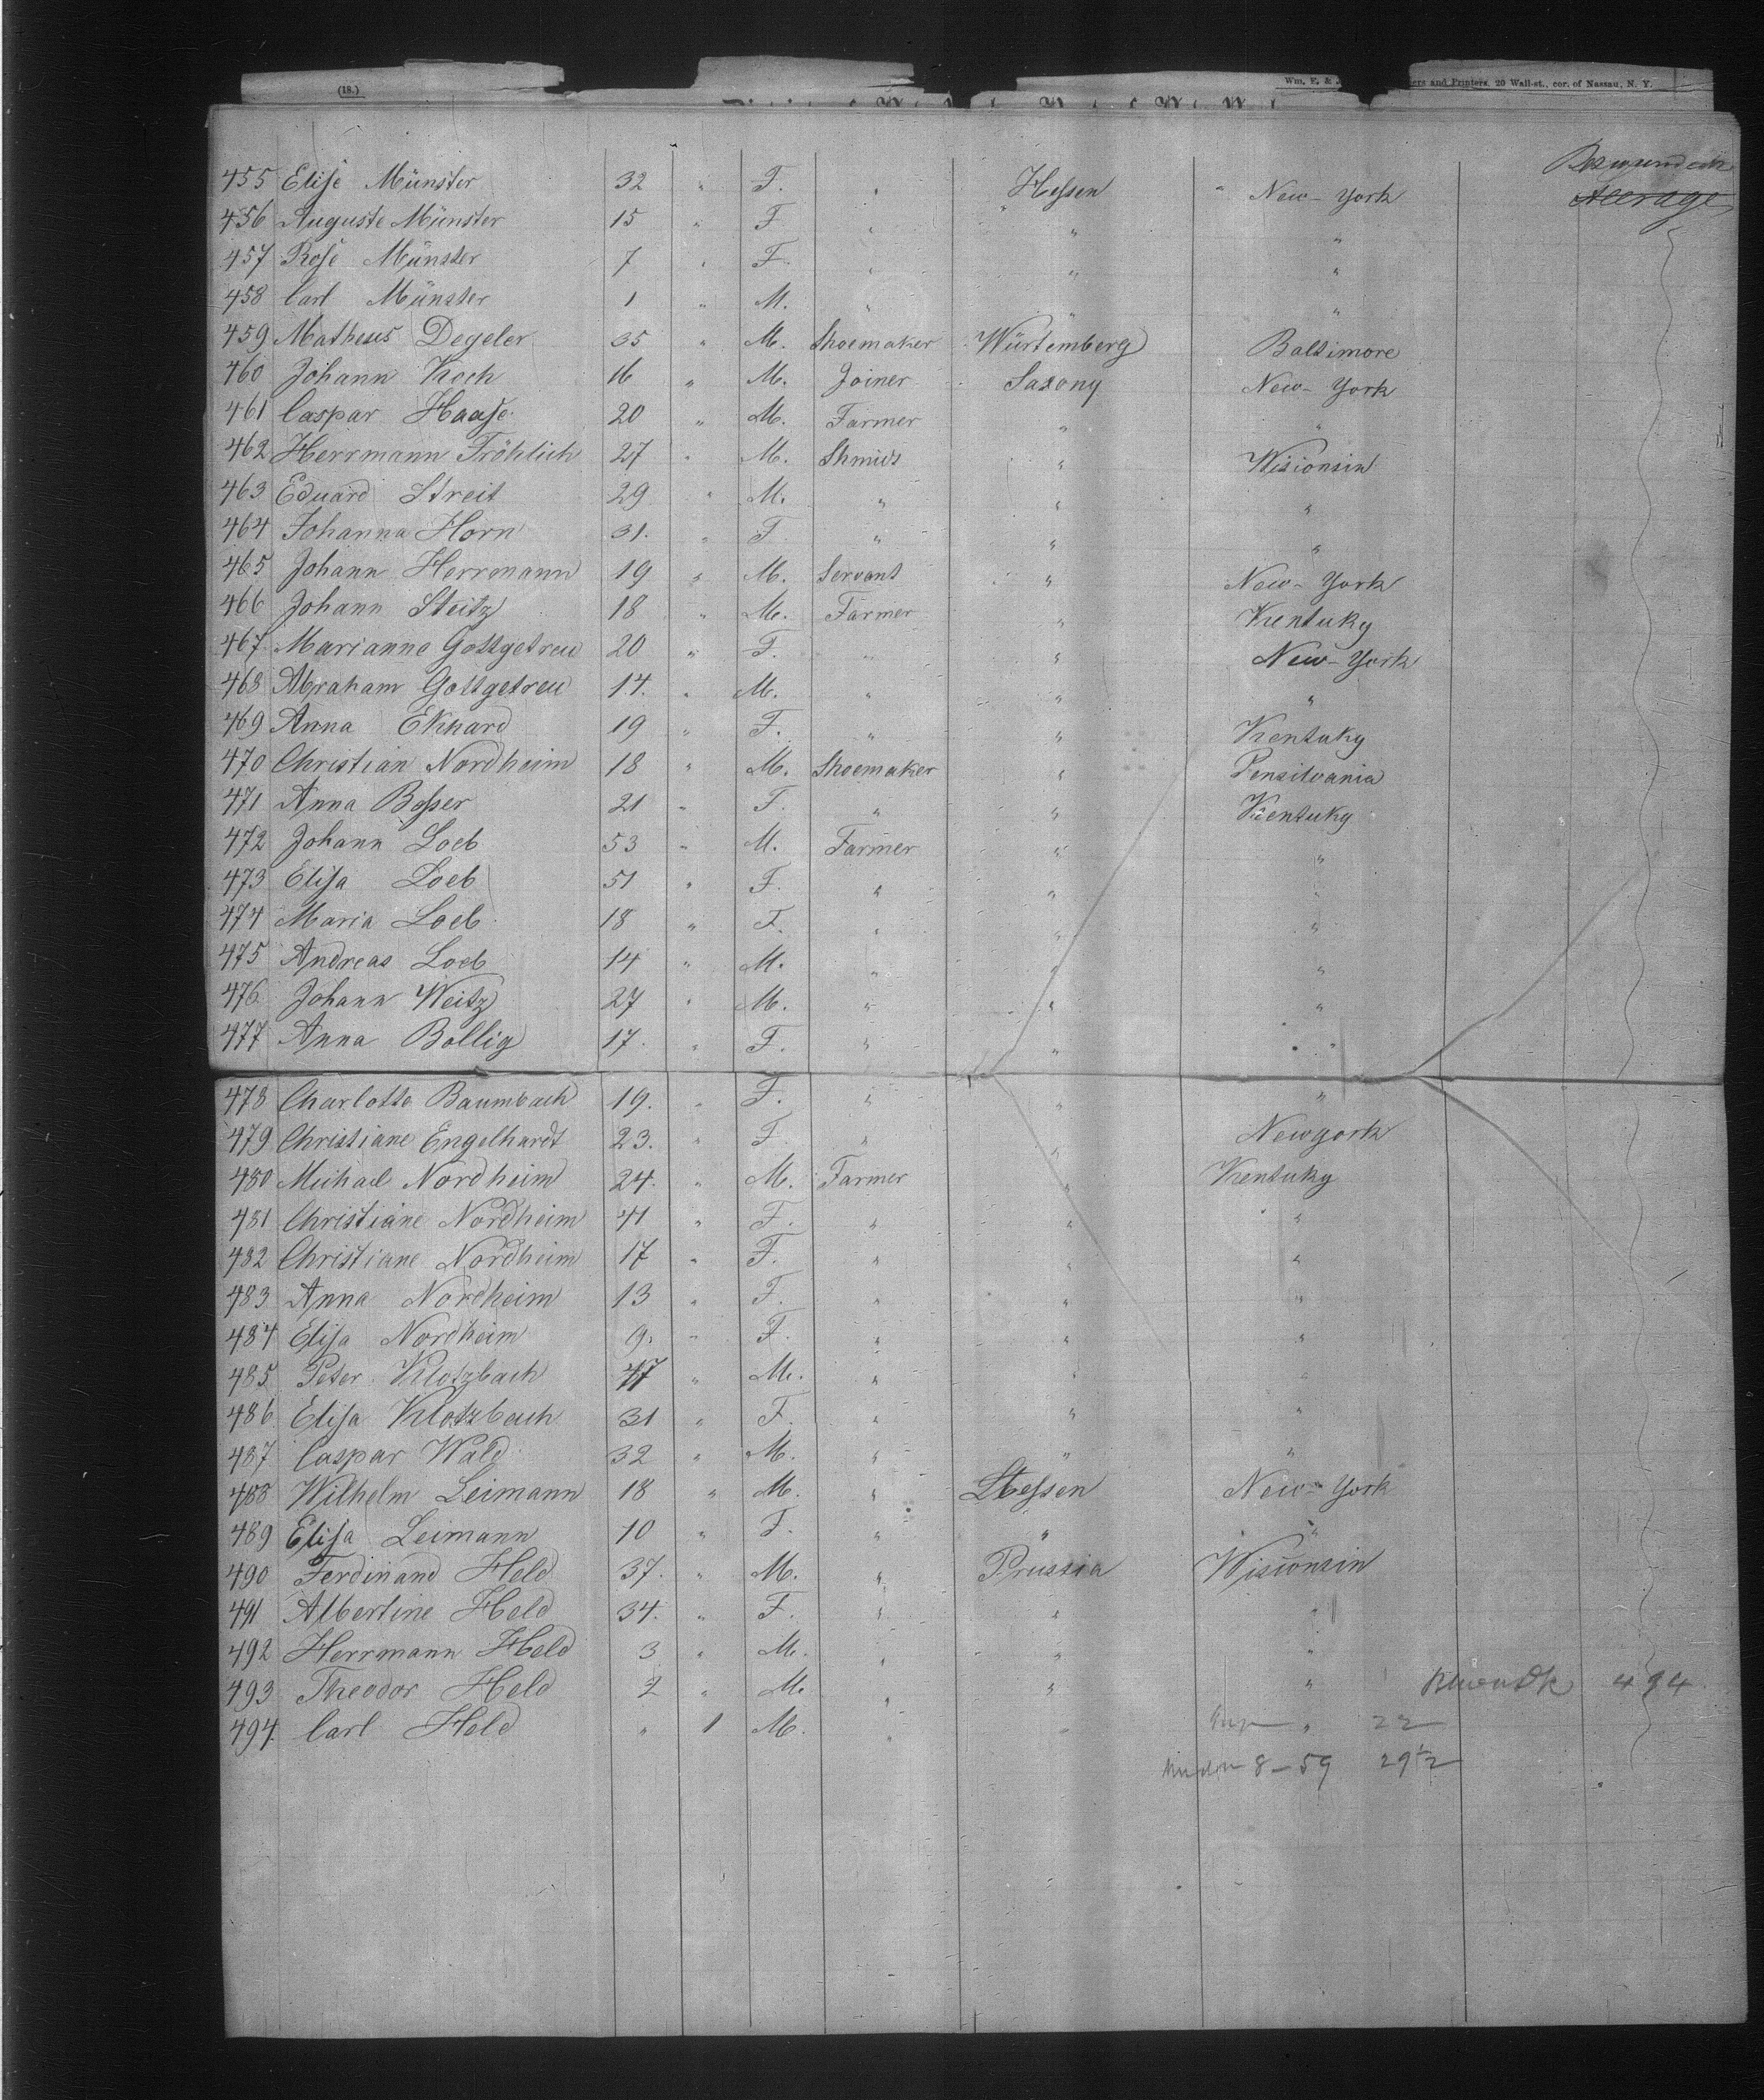 (18.) Wm. F. & ers and Printers, 20 Wall-st., cor. of Nassau, N. Y.
455 Elise Münster 32 " F. " Hessen " New-York
Steerage
456 Auguste Münster 15 " F " " "
457 Rose Münster 7 " F. " " "
458 Carl Münster 1 " M. " " "
459 Matheus Degeler 35 " M. Shoemaker Würtemberg Baltimore
460 Johann Koch 16 " M. Joiner Saxony New-York
461 Caspar Haase 20 " M. Farmer " "
462 Herrmann Fröhlich 27 " M. Shmidt " Wisconsin
463 Eduard Streit 29 " M. " " "
464 Johanna Horn 31. " F " " "
465 Johann Herrmann 19 " M. Servant " New-York
466 Johann Steitz 18 " M. Farmer " Kentuky
467 Marianne Gottgetreu 20 " F. " " New-York
468 Abraham Gottgetreu 14. " M. " " "
469 Anna Ekhard 19 " F. " " Kentuky
470 Christian Nordheim 18 " M. Shoemaker " Pensilvania
471 Anna Bosser 21 " F. " " Kentuky
472 Johann Loeb 53 " M. Farmer " "
473 Elisa Loeb 51 " F. " " "
474 Maria Loeb 18 " F. " " "
475 Andreas Loeb 14 " M. " " "
476 Johann Weitz 27 " M. " " "
477 Anna Bollig 17. " F. " " "
478 Charlotte Baumbach 19. " F. " " "
479 Christiane Engelhardt 23. " F. " " Newyork
480 Michael Nordheim 24. " M. Farmer " Kentuky
481 Christiane Nordheim 41 " F. " " "
482 Christiane Nordheim 17 " F. " " "
483 Anna Nordheim 13 " F. " " "
484 Elisa Nordheim 9. " F. " " "
485 Peter Klotzbach 47 " M. " " "
486 Elisa Klotzbach 31 " F. " " "
487 Caspar Wald 32 " M. " " "
488 Wilhelm Leimann 18 " M. " Hessen New-York
489 Elisa Leimann 10 " F. " " "
490 Ferdinand Held 37. " M. " Prussia Wisconsin
491 Albertine Held 34. " F. " " "
492 Herrmann Held 3 " M. " " "
493 Theodor Held 2 " M. " " " 494
494 Carl Held " 1 M. " " " 22
8-59 29½